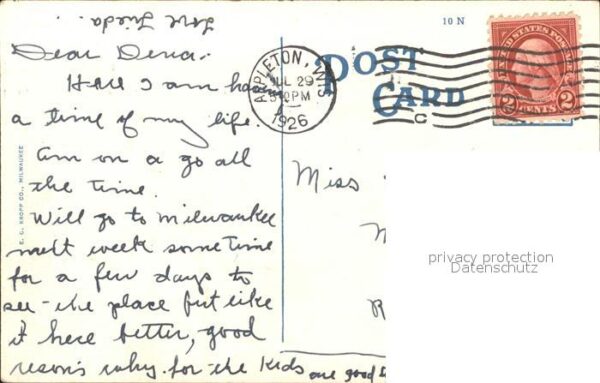 Love Frieda.
10 N
Dear Dena.
Here I am having
a time of my life.
Am on a go all
the time.
Will go to Milwaukee
next week some time
for a few days to
see the place but like
it here better, good
reason's why. for the kids are good
E. C. KROPP CO., MILWAUKEE
POST
CARD
APPLETON, WIS
JUL 29
5 30 PM
1926
C
UNITED STATES POSTAGE
2 CENTS 2
Miss
privacy protection
Datenschutz